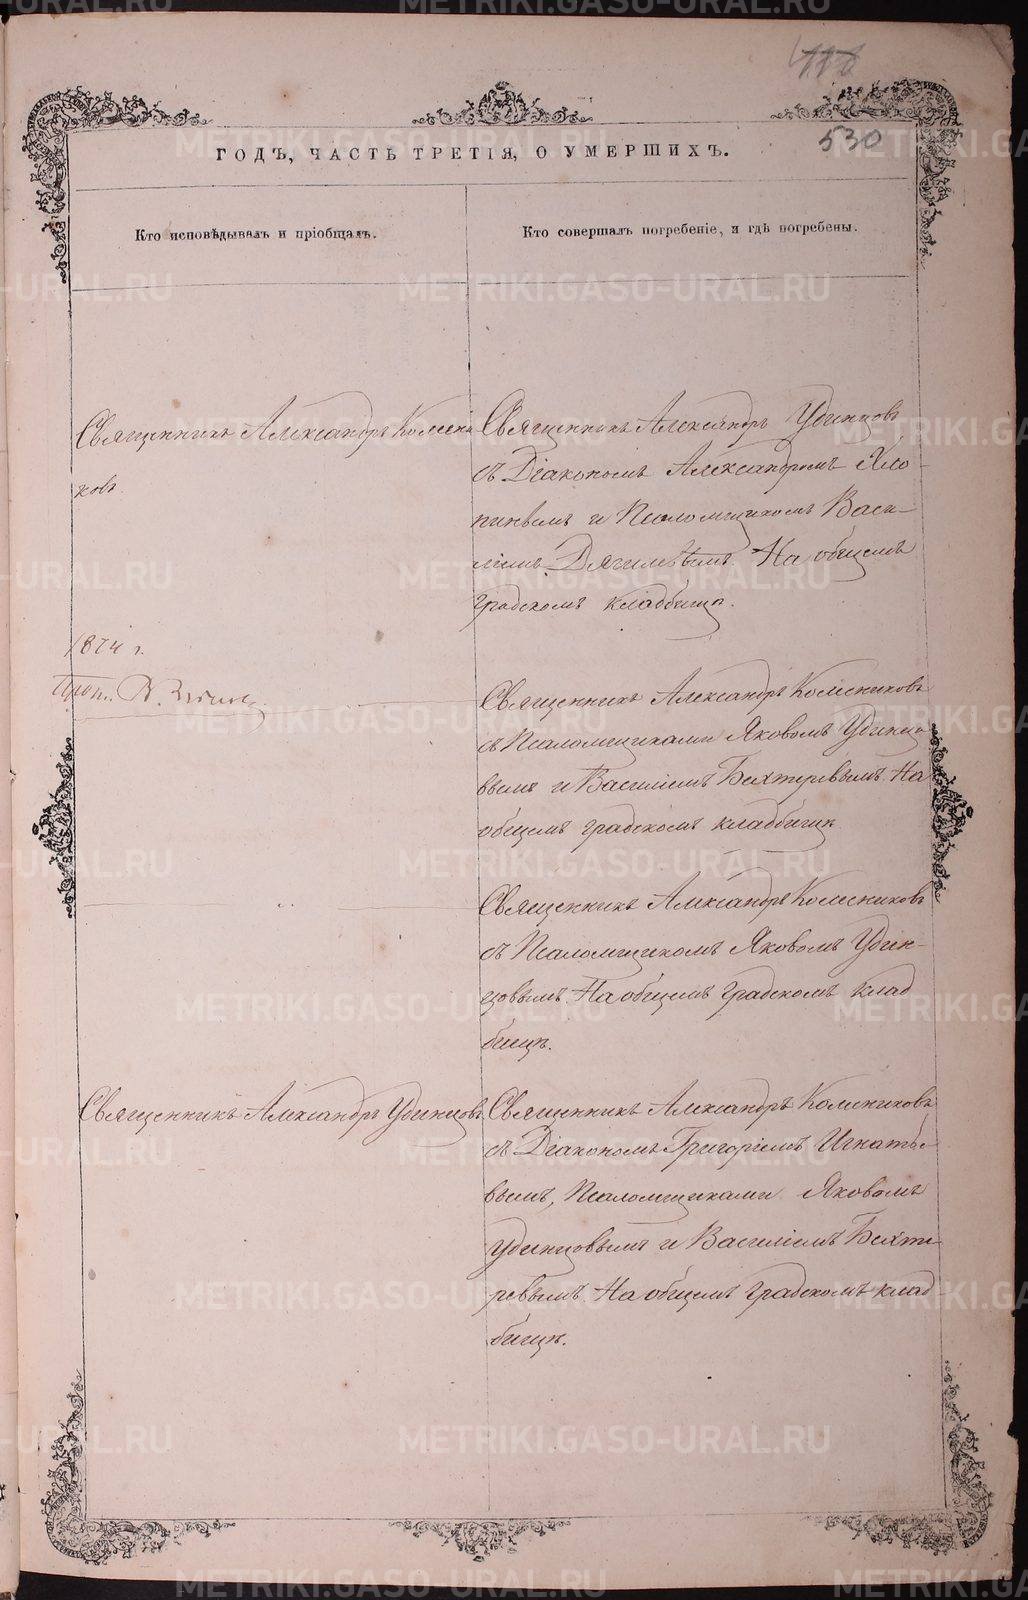 530
ГОДЪ, ЧАСТЬ ТРЕТІЯ, О УМЕРШИХЪ.
Кто исповѣдывалъ и пріобщалъ.
Кто совершалъ погребеніе, и гдѣ погребены.
Священникъ Александръ Колесни
ковъ.
Священникъ Александръ Удинцовъ
съ Діакономъ Александромъ Яло-
пинымъ и Псаломщикомъ Васи-
ліемъ Дягилевымъ. На общемъ
градскомъ кладбищѣ.
1874 г.
Священникъ Александръ Колесниковъ
съ Псаломщиками Яковомъ Удинцо
вымъ и Василіемъ Бехтеревымъ. На
общемъ градскомъ кладбищѣ
Священникъ Александръ Колесниковъ
съ Псаломщикомъ Яковомъ Удин-
цовымъ. На общемъ градскомъ клад
бищѣ.
Священникъ Александръ Удинцовъ
Священникъ Александръ Колесниковъ
съ Діакономъ Григоріемъ Игнатье-
вымъ, Псаломщиками Яковомъ
Удинцовымъ и Василіемъ Бехте
ревымъ. На общемъ градскомъ клад-
бищѣ.
METRIKI.GASO-URAL.RU